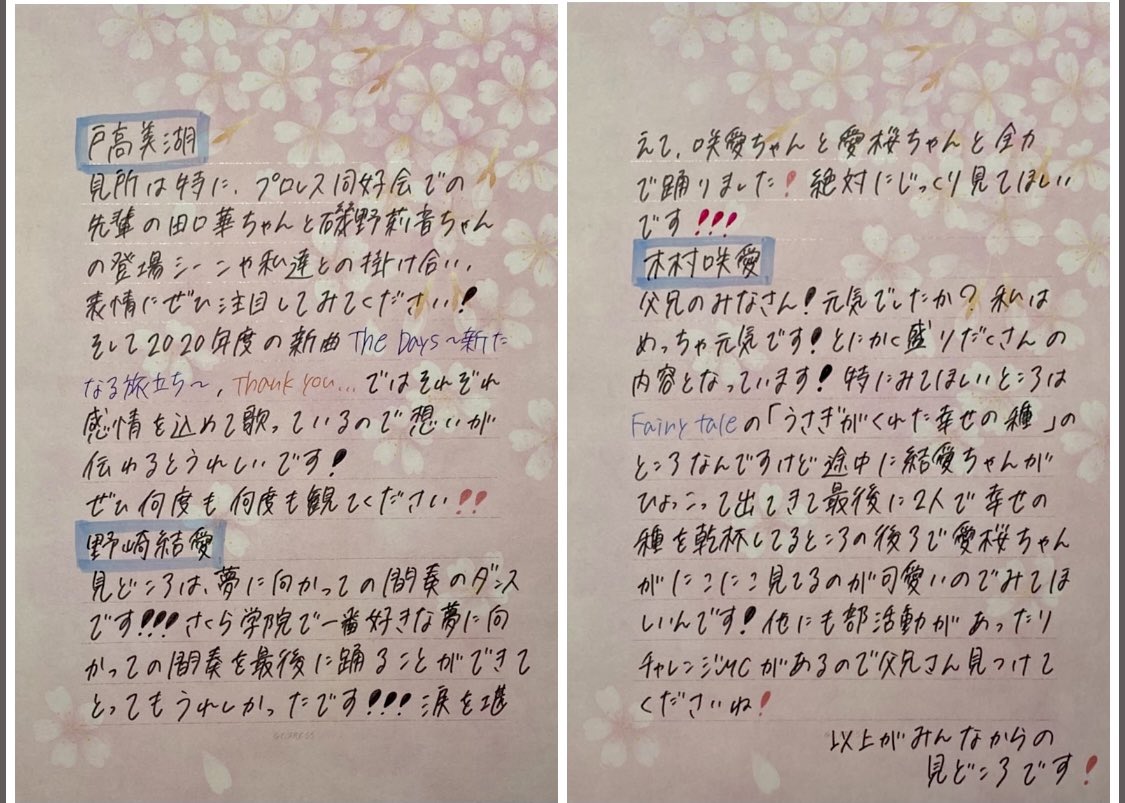 戸高美湖
見所は特に、プロレス同好会での
先輩の田口華ちゃんと磯野莉音ちゃん
の登場シーンや私達との掛け合い、
表情にぜひ注目してみてください!
そして2020年度の新曲The Days〜新た
なる旅立ち〜, Thank you...ではそれぞれ
感情を込めて歌っているので想いが
伝わるとうれしいです!
ぜひ何度も何度も観てください!!
野崎結愛
見どころは、夢に向かっての間奏のダンス
です!!!さくら学院で一番好きな夢に向
かっての間奏を最後に踊ることができて
とってもうれしかったです!!!涙を堪
えて、咲愛ちゃんと愛桜ちゃんと全力
で踊りました!絶対にじっくり見てほしい
です!!!
木村咲愛
父兄のみなさん!元気でしたか?私は
めっちゃ元気です!とにかく盛りだくさんの
内容となっています!特にみてほしいところは
Fairy taleの「うさぎがくれた幸せの種」の
ところなんですけど途中に結愛ちゃんが
ひょこって出てきて最後に2人で幸せの
種を乾杯してるところの後ろで愛桜ちゃん
がにこにこ見てるのが可愛いのでみてほ
しいんです!他にも部活動があったり
チャレンジMCがあるので父兄さん見つけて
くださいね!
以上がみんなからの
見どころです!